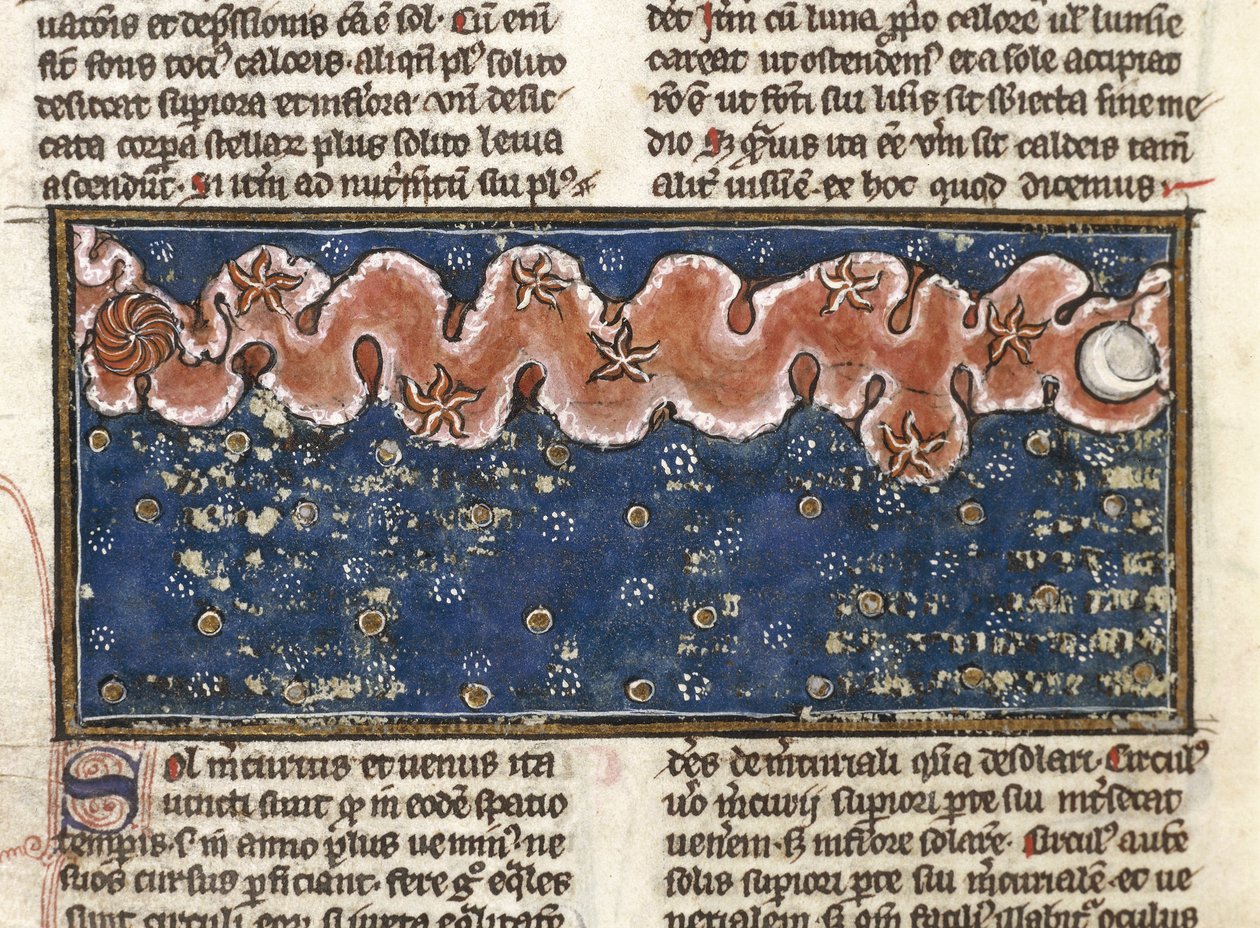 uatōis et dep̄ssionis cā ē sol. Cū enī
sit fons toci⁹ caloris. aliqn̄ pl⁹ solito
desiccat suꝑiora et inf̄iora. vn̄ desic-
cata corꝑa stellaꝝ plus solito leuia
ascendūt. Si itm̄ ad nut̄m̄tū sui pl⁹
det Itm̄ cū luna ꝓp̄o calore ul̓ lumīe
careat ut ostendem⁹ et a sole accipiat
rō ē ut fonti sui sit sb̄iecta sine me-
dio Sꝫ ita vn̄ sit caldeis tam̄
alit̄ uisū ē. ex hoc quod dicemus
Sol m̄curius et uenus ita
iuncti sunt ꝙ in eodē spatio
temꝑis. s. in anno plus ue min⁹. ne
suos cursus ꝑficiant. fere gͦ eq̄les
sunt circuli eoꝝ si iuxta eq̄litatē
des de m̄curiali qͥa de solari. Circul⁹
u̓o m̄curij suꝑiori ꝑte sui int̄secat
uen̄em. Sꝫ inf̄iore solarē. Circul⁹ autē
solis suꝑiori ꝑte sui m̄curialē. et ue
nerialem. Sꝫ qm̄ facili⁹ illabit̄ oculus